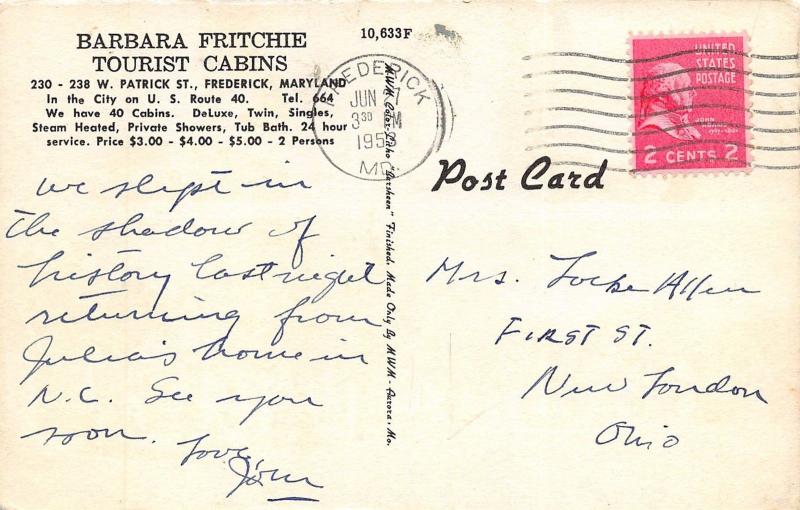 BARBARA FRITCHIE
TOURIST CABINS
230 - 238 W. PATRICK ST., FREDERICK, MARYLAND
In the City on U. S. Route 40. Tel. 664
We have 40 Cabins. DeLuxe, Twin, Singles,
Steam Heated, Private Showers, Tub Bath. 24 hour
service. Price $3.00 - $4.00 - $5.00 - 2 Persons
10,633F
FREDERICK
JUN
3 30 PM
195
MD
UNITED
STATES
POSTAGE
JOHN
ADAMS
1797-1801
2 CENTS 2
Post Card
MWM Color-Litho "Larsheen" Finished. Made Only By MWM - Aurora, Mo.
We slept in
the shadow of
history last night
returning from
Julia's home in
N.C. See you
soon. Love,
Mrs. Locke Allen
FIRST ST.
New London
Ohio